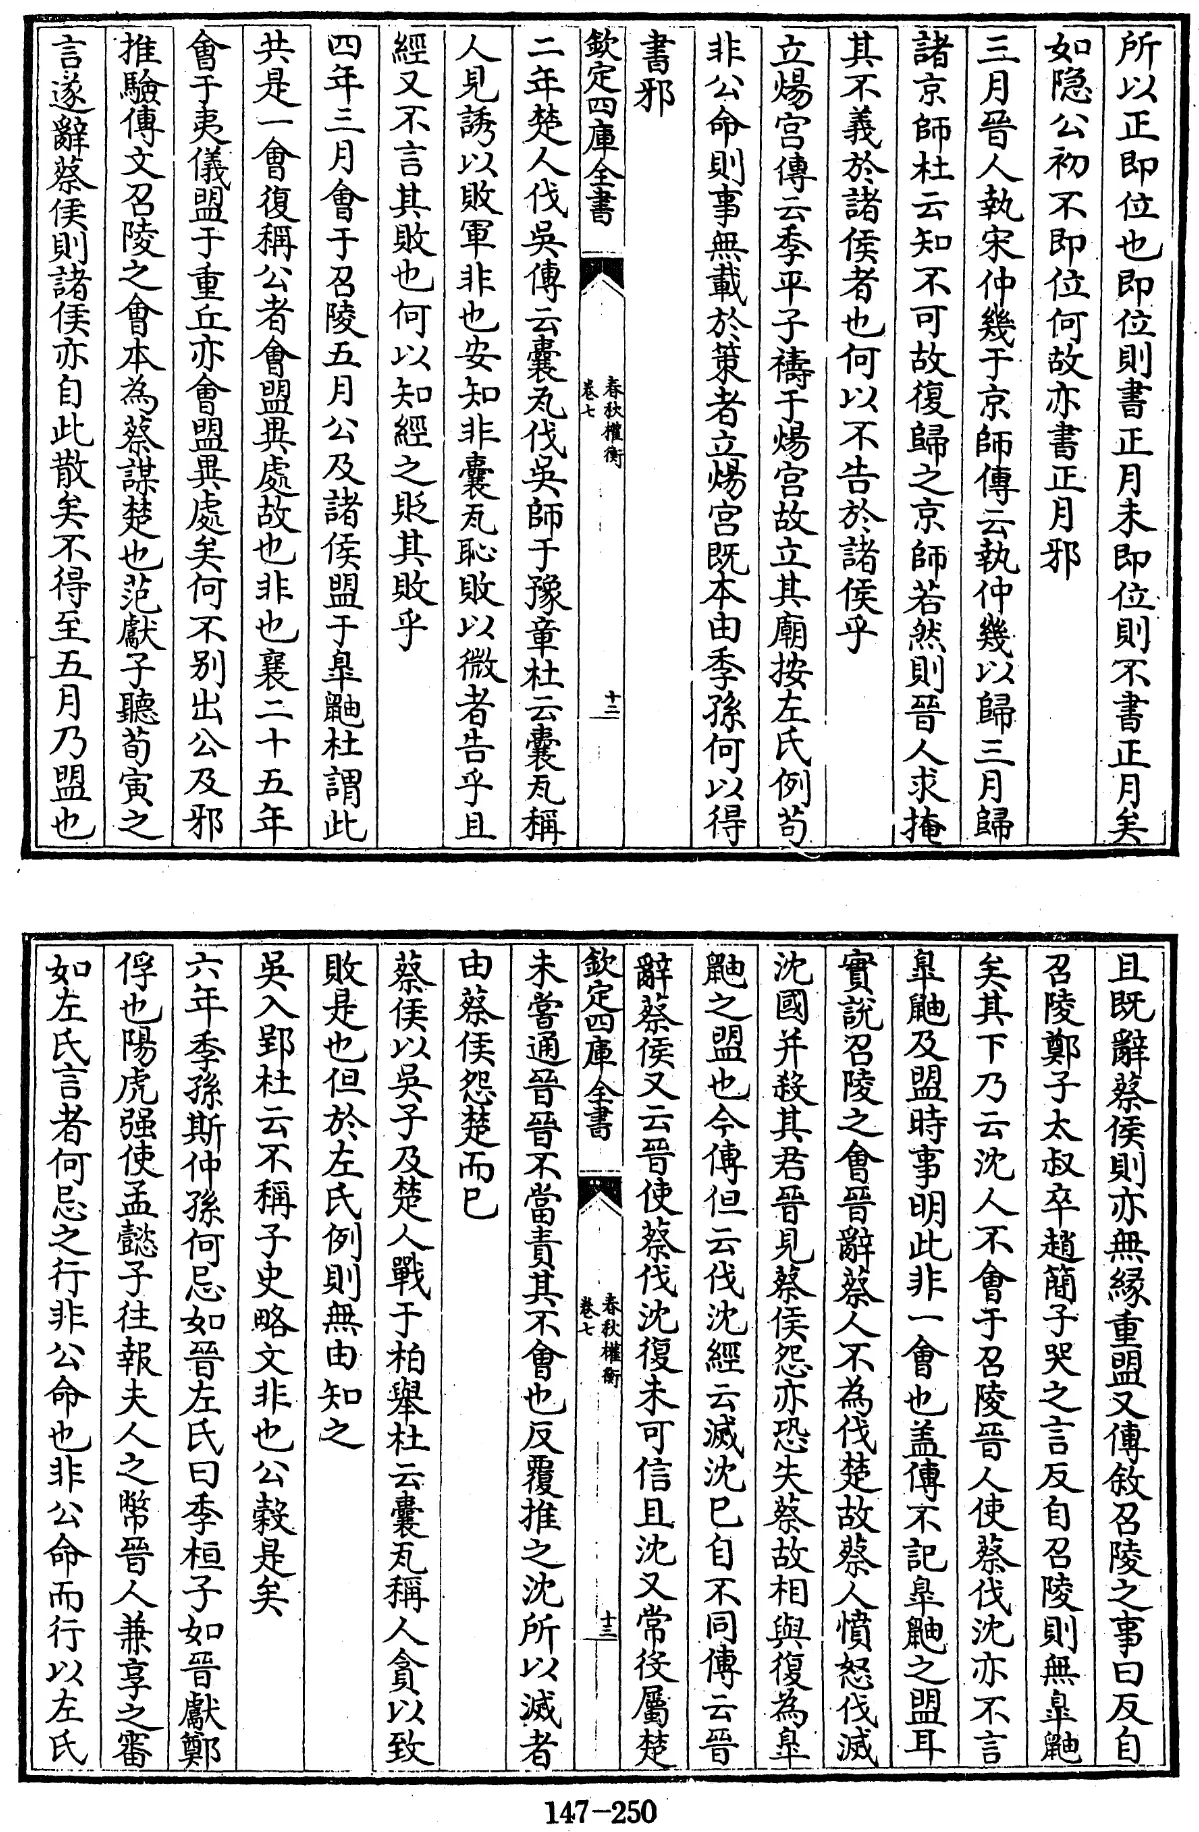 所以正即位也即位則書正月未即位則不書正月矣
如隐公初不即位何故亦書正月邪
三月晉人執宋仲幾于京師傳云執仲幾以歸三月歸
諸京師杜云知不可故復歸之京師若然則晉人求掩
其不義於諸侯者也何以不告於諸侯乎
立煬宫傳云季平子禱于煬宫故立其廟按左氏例茍
非公命則事無載於策者立煬宫既本由季孫何以得
書邪
欽定四庫全書
春秋權衡
卷七
十二
二年楚人伐吳傳云囊瓦伐吳師于豫章杜云囊瓦稱
人見誘以敗軍非也安知非囊瓦恥敗以微者告乎且
經又不言其敗也何以知經之貶其敗乎
四年三月會于召陵五月公及諸侯盟于臯鼬杜謂此
共是一會復稱公者會盟異處故也非也襄二十五年
會于夷儀盟于重丘亦會盟異處矣何不别出公及邪
推驗傳文召陵之會本為蔡謀楚也范獻子聽荀寅之
言遂辭蔡侯則諸侯亦自此散矣不得至五月乃盟也
且既辭蔡侯則亦無緣重盟又傳敘召陵之事曰反自
召陵鄭子太叔卒趙簡子哭之言反自召陵則無臯鼬
矣其下乃云沈人不會于召陵晉人使蔡伐沈亦不言
臯鼬及盟時事明此非一會也盖傳不記臯鼬之盟耳
實說召陵之會晉辭蔡人不為伐楚故蔡人憤怒伐滅
沈國并殺其君晉見蔡侯怨亦恐失蔡故相與復為臯
鼬之盟也今傳但云伐沈經云滅沈已自不同傳云晉
辭蔡侯又云晉使蔡伐沈復未可信且沈又常役屬楚
欽定四庫全書
春秋權衡
卷七
十三
未嘗通晉晉不當責其不會也反覆推之沈所以滅者
由蔡侯怨楚而已
蔡侯以吳子及楚人戰于柏舉杜云囊瓦稱人貪以致
敗是也但於左氏例則無由知之
吳入郢杜云不稱子史略文非也公榖是矣
六年季孫斯仲孫何忌如晉左氏曰季桓子如晉獻鄭
俘也陽虎强使孟懿子往報夫人之幣晉人兼享之審
如左氏言者何忌之行非公命也非公命而行以左氏
147-250